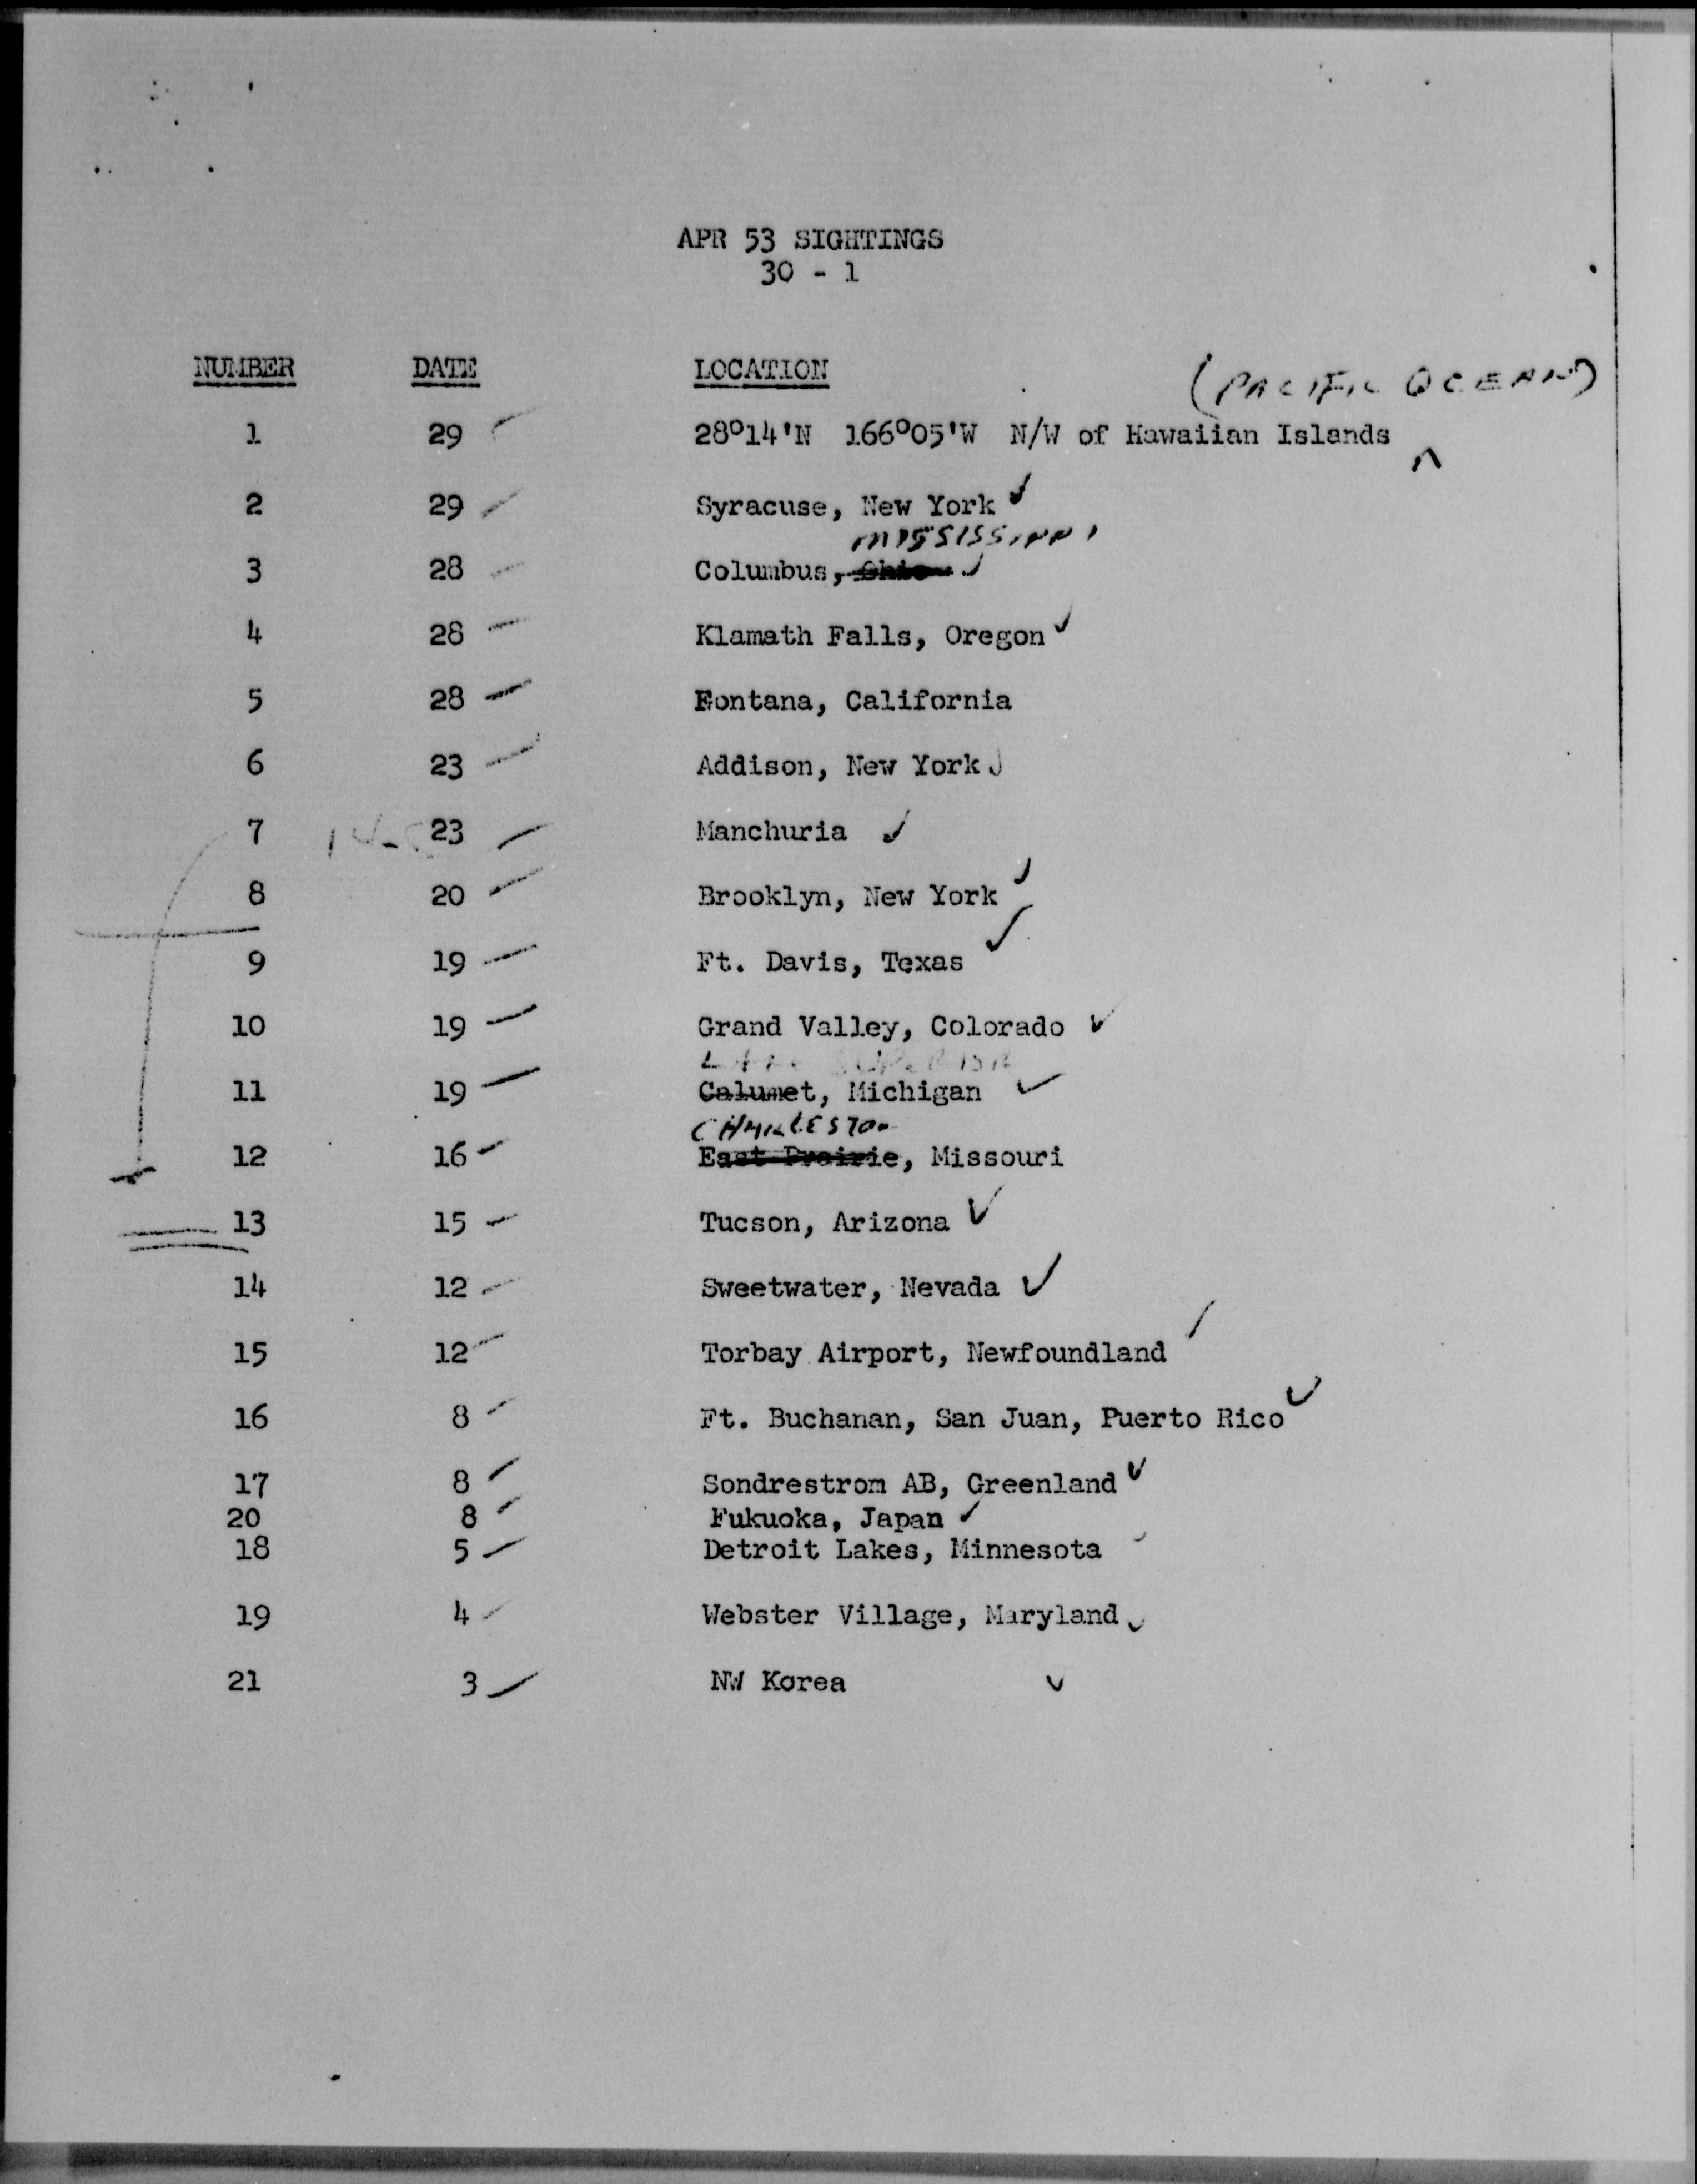 APR 53 SIGHTINGS
30 - 1
NUMBER DATE LOCATION
(PACIFIC OCEAN)
1 29 28°14'N 166°05'W N/W of Hawaiian Islands
2 29 Syracuse, New York
MISSISSIPPI
3 28 Columbus, Ohio
4 28 Klamath Falls, Oregon
5 28 Fontana, California
6 23 Addison, New York
7 23 Manchuria
8 20 Brooklyn, New York
9 19 Ft. Davis, Texas
10 19 Grand Valley, Colorado
LAKE SUPERIOR
11 19 Calumet, Michigan
CHARLESTON
12 16 East Prairie, Missouri
13 15 Tucson, Arizona
14 12 Sweetwater, Nevada
15 12 Torbay Airport, Newfoundland
16 8 Ft. Buchanan, San Juan, Puerto Rico
17 8 Sondrestrom AB, Greenland
20 8 Fukuoka, Japan
18 5 Detroit Lakes, Minnesota
19 4 Webster Village, Maryland
21 3 NW Korea